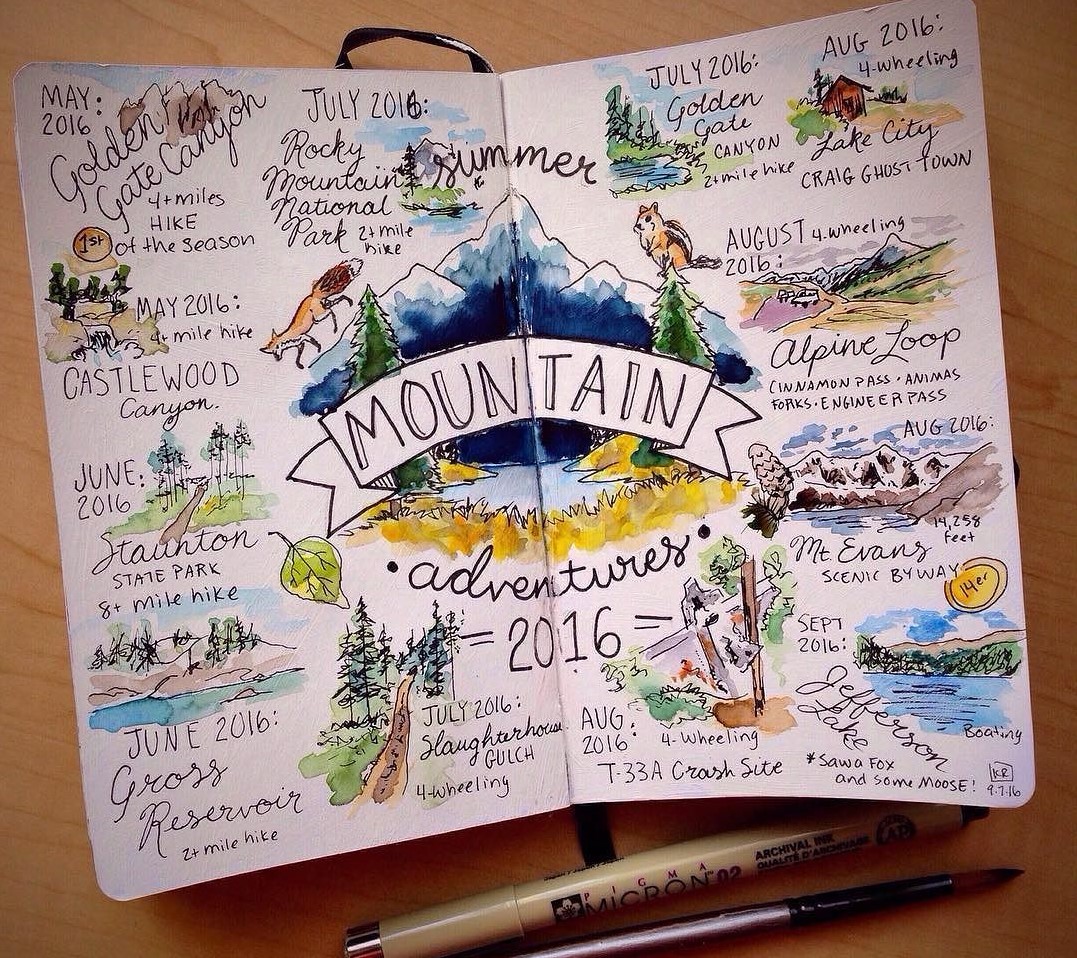 MAY:
2016:
Golden
Gate Canyon
4+ miles
HIKE
1st of the season
MAY 2016:
4+ mile hike
CASTLEWOOD
Canyon.
JUNE:
2016
Staunton
STATE PARK
8+ mile hike
JUNE 2016:
Gross
Reservoir
2+ mile hike
JULY 2016:
Rocky
Mountain
National
Park 2+ mile
hike
JULY 2016:
Slaughterhouse
GULCH
4-wheeling
summer
MOUNTAIN
• adventures •
= 2016 =
JULY 2016:
Golden
Gate
CANYON
2+ mile hike
AUG 2016:
4-wheeling
Lake City
CRAIG GHOST TOWN
AUGUST 4-wheeling
2016:
Alpine Loop
CINNAMON PASS • ANIMAS
FORKS • ENGINEER PASS
AUG 2016:
14,258
feet
Mt Evans
SCENIC BYWAY
14er
AUG:
2016:
4-Wheeling
T-33A Crash Site
SEPT
2016:
Jefferson
Lake
Boating
*Sawa Fox
and some MOOSE!
KR
9.7.16
PIGMA
MICRON 02
ARCHIVAL INK
QUALITÉ D'ARCHIVAGE
AP